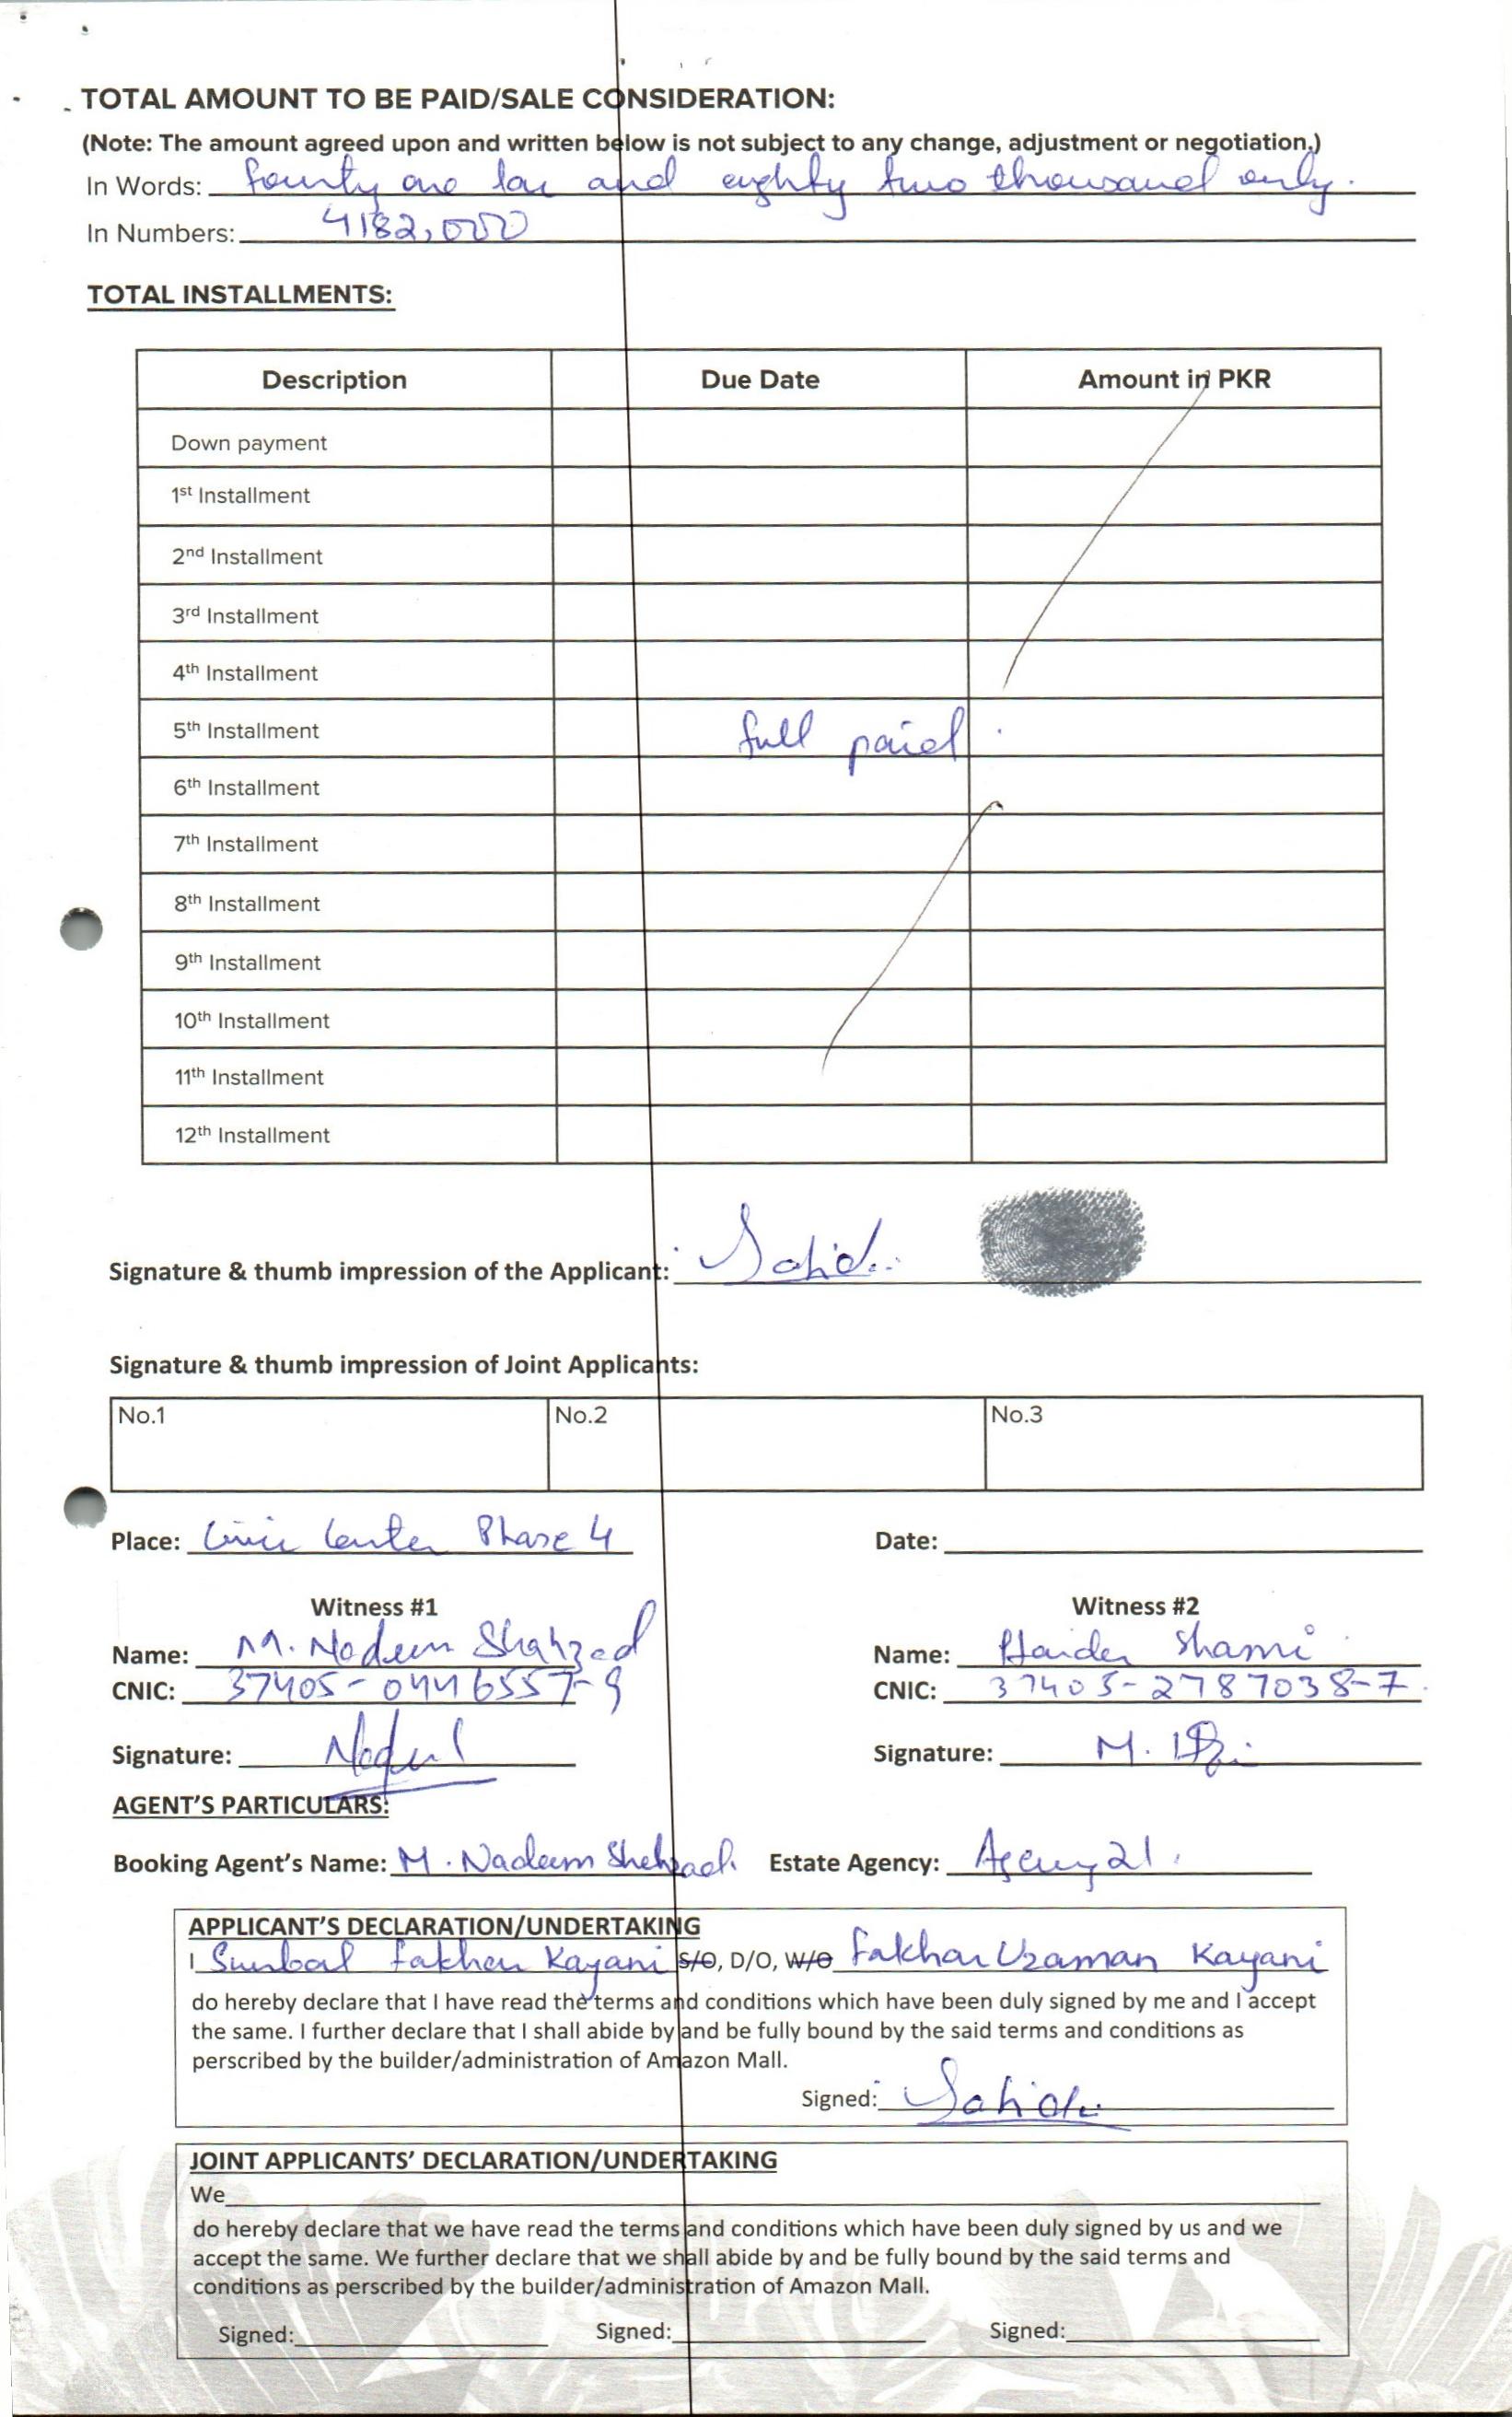 TOTAL AMOUNT TO BE PAID/SALE CONSIDERATION:
(Note: The amount agreed upon and written below is not subject to any change, adjustment or negotiation.)
In Words: fourty one lac and eighty two thousand only.
In Numbers: 4182,000
TOTAL INSTALLMENTS:
Description Due Date Amount in PKR
Down payment
1st Installment
2nd Installment
3rd Installment
4th Installment
5th Installment full paid
6th Installment
7th Installment
8th Installment
9th Installment
10th Installment
11th Installment
12th Installment
Signature & thumb impression of the Applicant:
Signature & thumb impression of Joint Applicants:
No.1 No.2 No.3
Place: Civic Center Phase 4 Date:
Witness #1 Witness #2
Name: M. Nadeem Shahzad Name: Haider Shami
CNIC: 37405-0446557-9 CNIC: 37405-2787038-7
Signature: Signature: M.
AGENT'S PARTICULARS:
Booking Agent's Name: M. Nadeem Shehzad. Estate Agency: Agency 21.
APPLICANT'S DECLARATION/UNDERTAKING
I Sunbal Fakher Kayani S/O, D/O, W/O Fakhar Uzaman Kayani
do hereby declare that I have read the terms and conditions which have been duly signed by me and I accept
the same. I further declare that I shall abide by and be fully bound by the said terms and conditions as
perscribed by the builder/administration of Amazon Mall.
Signed:
JOINT APPLICANTS' DECLARATION/UNDERTAKING
We
do hereby declare that we have read the terms and conditions which have been duly signed by us and we
accept the same. We further declare that we shall abide by and be fully bound by the said terms and
conditions as perscribed by the builder/administration of Amazon Mall.
Signed: Signed: Signed: